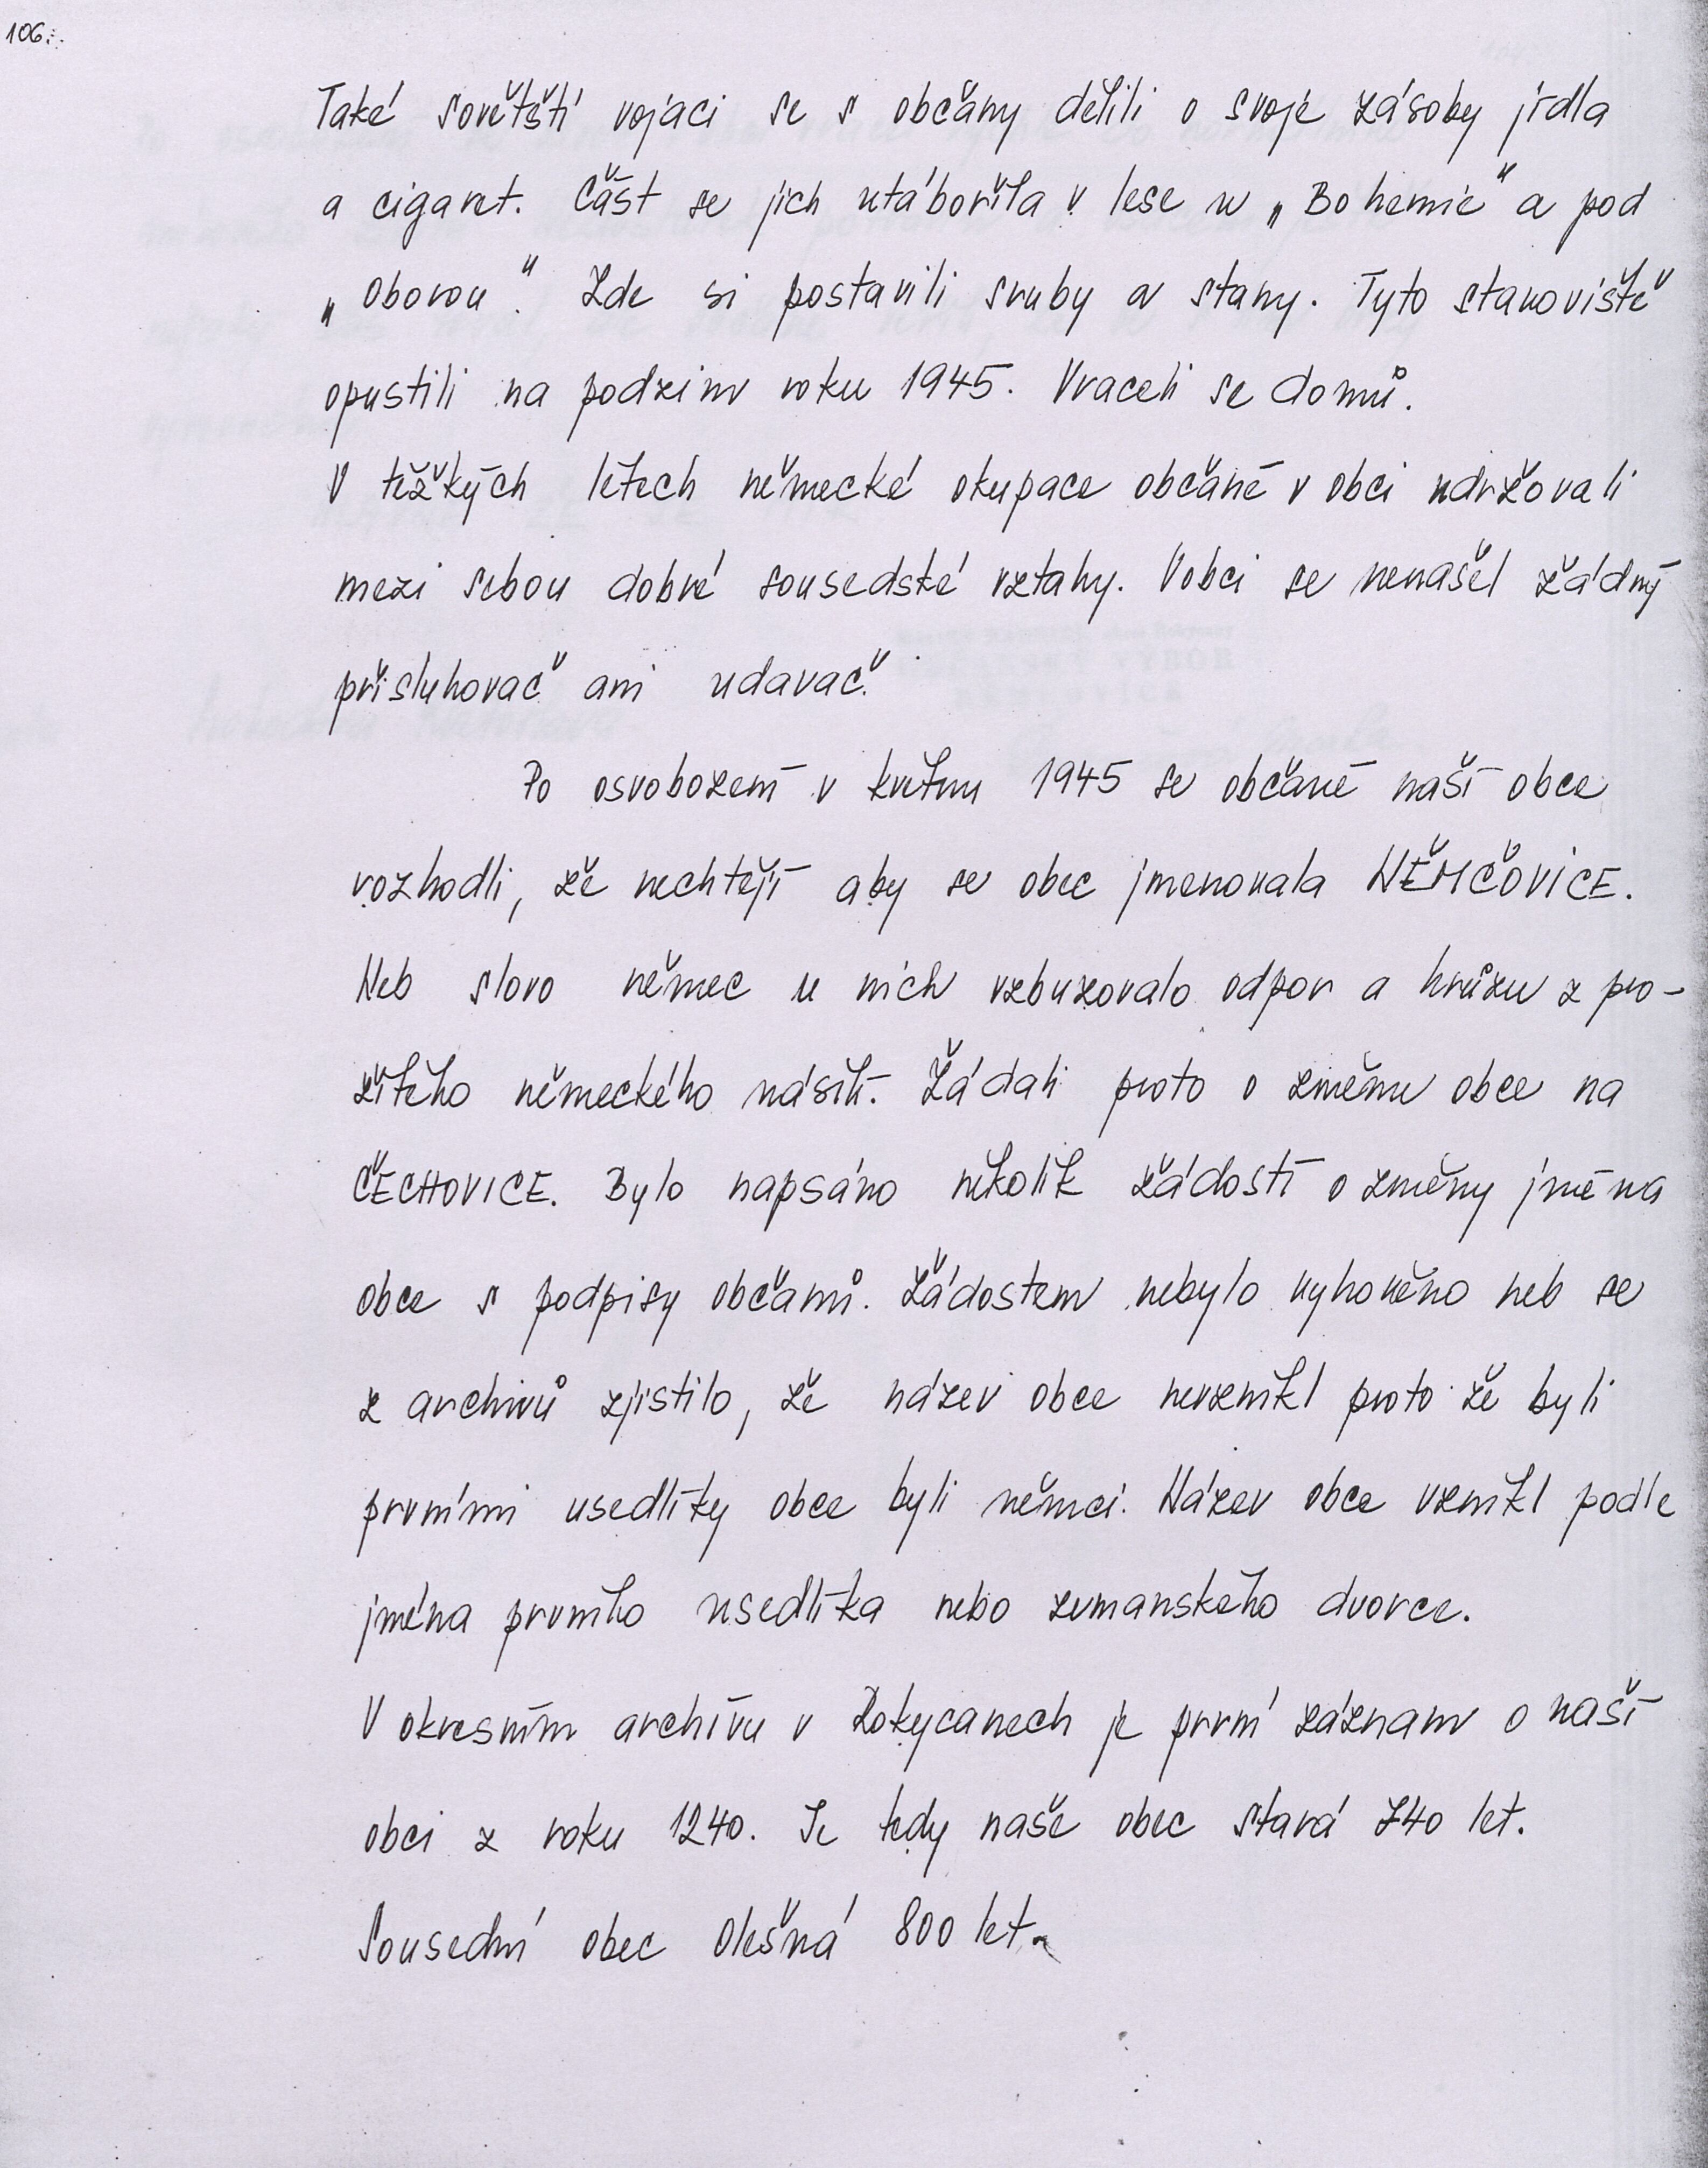 106.
Také sovětští vojáci se s občány dělili o svoje zásoby jídla
a cigaret. Část se jich utábořila v lese u „Bohemie" a pod
„Oborou". Zde si postavili sruby a stany. Tyto stanoviště
opustili na podzim roku 1945. Vraceli se domů.
V těžkých létech německé okupace občané v obci udržovali
mezi sebou dobré sousedské vztahy. V obci se nenašel žádný
přisluhovač ani udavač.
Po osvobození v květnu 1945 se občané naší obce
rozhodli, že nechtějí aby se obec jmenovala NĚMČOVICE.
Neb slovo němec u nich vzbuzovalo odpor a hrůzu z pro-
žitého německého násilí. Žádali proto o změnu obce na
ČECHOVICE. Bylo napsáno několik žádostí o změny jména
obce s podpisy občanů. Žádostem nebylo vyhověno neb se
z archivů zjistilo, že název obce nevznikl proto že byli
prvními usedlíky obce byli němci. Název obce vznikl podle
jména prvního usedlíka nebo zemanského dvorce.
V okresním archívu v Rokycanech je první záznam o naší
obci z roku 1240. Je tedy naše obec stará 740 let.
Sousední obec Olešná 800 let.